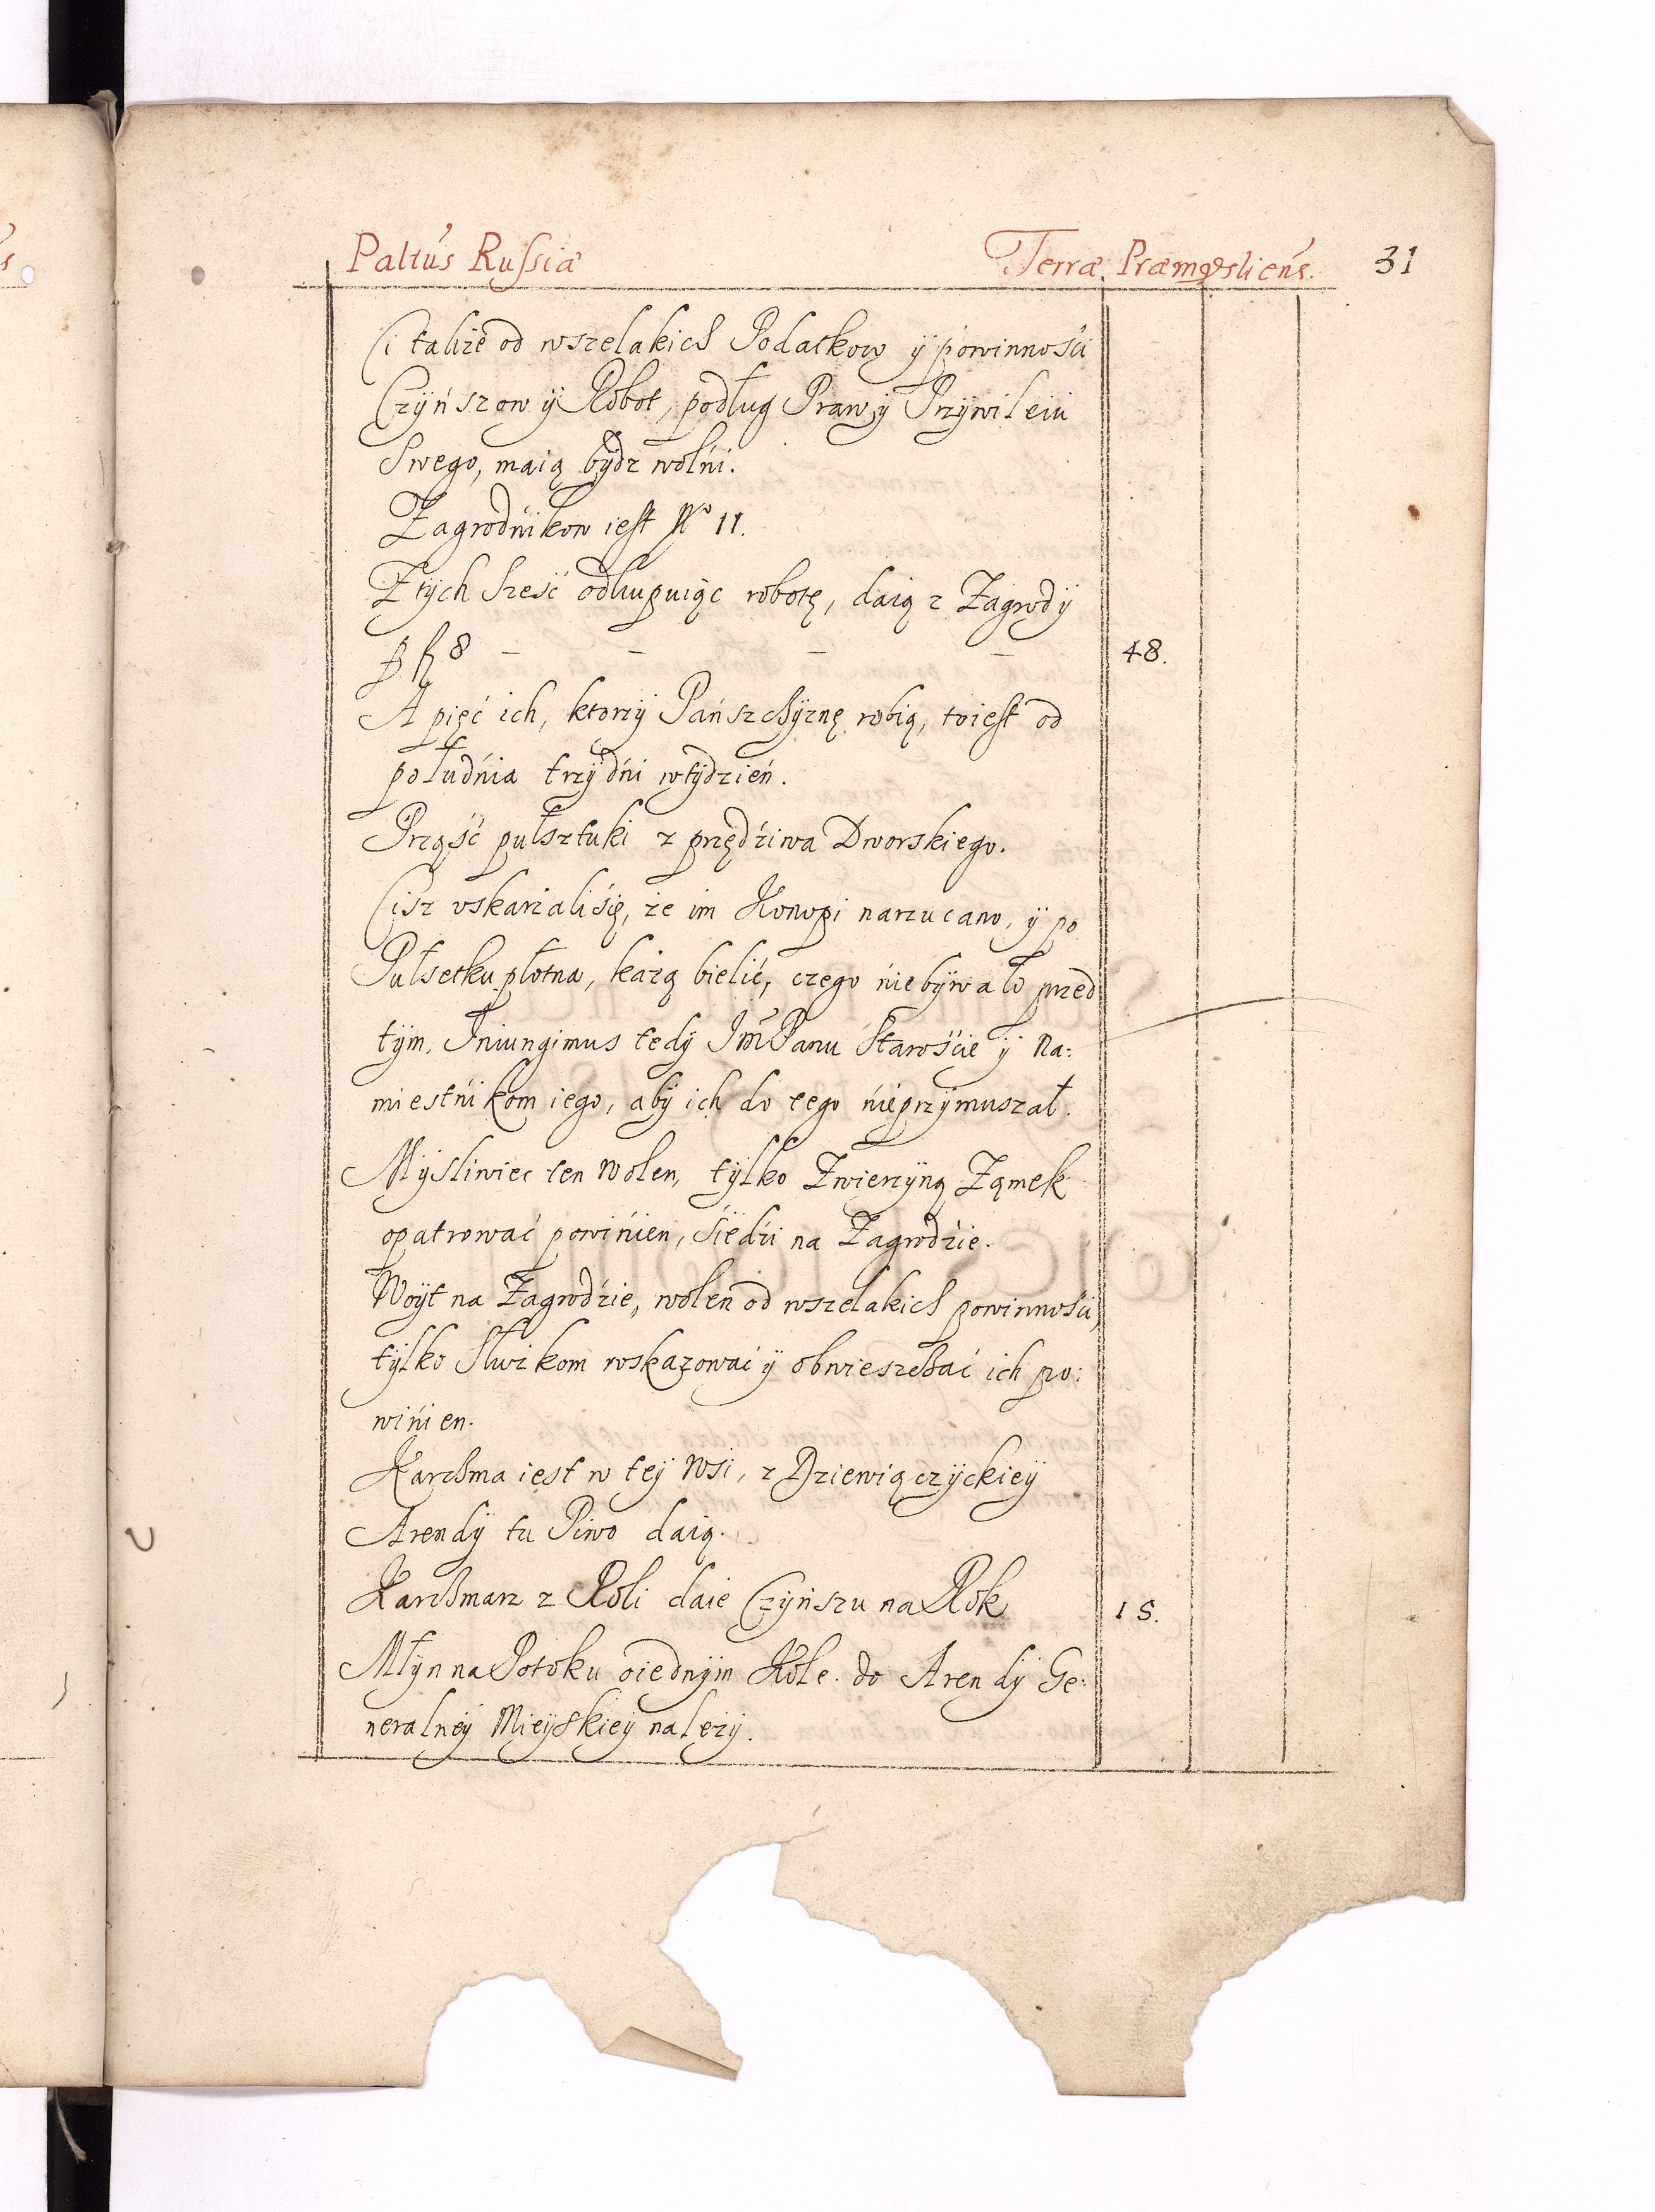 Paltus Russiæ Terræ Præmysliens. 31
Ci także od wszelakich Podatkow ÿ powinnośći
Czÿńszow ÿ Robot, podług Praw ÿ Przÿwileiu
Swego, maią bÿdz wolńi.
Zagrodńikow iest No 11.
Z tÿch sześć odkupuiąc robotę, daią z Zagrodÿ
p fl 8 — — — — 48.
A pięć ich, ktorzÿ Pańszchÿznę robią, toiest od
południa trzÿ dńi w tÿdzień.
Prząść pułsztuki z przędźiwa Dworskiego.
Cisz vskarżaliśię, że im Konopi narzucano, ÿ po
Pułsetku płotna, każą bielić, czego ńiebÿwało przed
tÿm, Iniungimus tedÿ Jm̃ Panu Starośćie ÿ Na:
miestńikom iego, abÿ ich do tego ńieprzÿmuszał.
Mÿsliwiec ten wolen, tÿlko Zwierzÿną Zamek
opatrować powińien, śiedźi na Zagrodźie.
Woÿt na Zagrodźie, wolen od wszelakich powinnośći,
tÿlko Służkom roskazować ÿ obwieszchać ich po:
wińien.
Karchma iest w teÿ Wsi, z Dziewiączÿckieÿ
Arendÿ tu Piwo daią.
Karchmarz z Roli daie Czÿńszu na Rok 15.
Młÿn na Potoku oiednÿm Kole. do Arendÿ Ge:
neralneÿ Mieÿskieÿ należÿ.